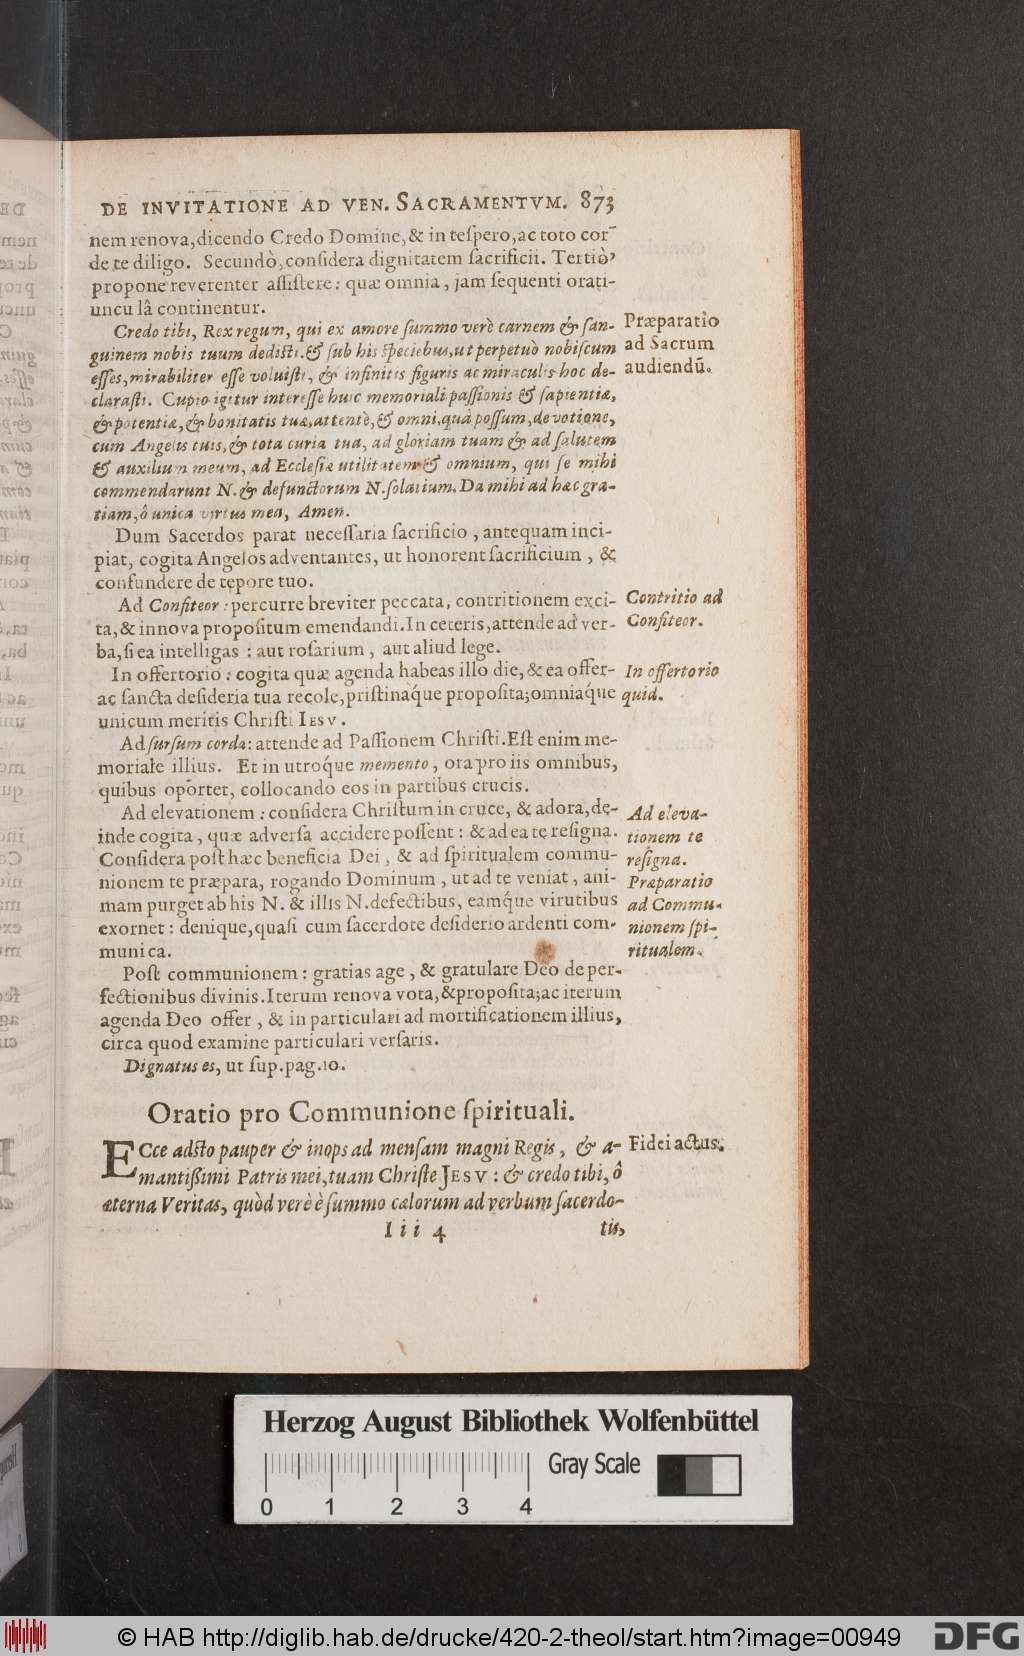 DE INVITATIONE AD VEN. SACRAMENTVM. 873
nem renova, dicendo Credo Domine, & in te spero, ac toto cor-
de te diligo. Secundò, considera dignitatem sacrificii. Tertiò,
propone reverenter assistere: quæ omnia, jam sequenti orati-
uncu lâ continentur.
Credo tibi, Rex regum, qui ex amore summo verè carnem & san-
guinem nobis tuum dedisti. & sub his speciebus, ut perpetuò nobiscum
esses, mirabiliter esse voluisti, & infinitis figuris ac miraculis hoc de-
clarasti. Cupio igitur interesse huic memoriali passionis & sapientiæ,
& potentiæ, & bonitatis tuæ, attentè, & omni, quâ possum, devotione,
cum Angelis tuis, & tota curia tua, ad gloriam tuam & ad salutem
& auxilium meum, ad Ecclesiæ utilitatem & omnium, qui se mihi
commendarunt N. & defunctorum N. solatium. Da mihi ad hæc gra-
tiam, ô unica virtus mea, Amen.
Præparatio
ad Sacrum
audiendũ.
Dum Sacerdos parat necessaria sacrificio, antequam inci-
piat, cogita Angelos adventantes, ut honorent sacrificium, &
confundere de tepore tuo.
Ad Confiteor: percurre breviter peccata, contritionem exci-
ta, & innova propositum emendandi. In ceteris, attende ad ver-
ba, si ea intelligas: aut rosarium, aut aliud lege.
Contritio ad
Confiteor.
In offertorio: cogita quæ agenda habeas illo die, & ea offer-
ac sancta desideria tua recole, pristináque proposita; omniáque
unicum meritis Christi IESV.
In offertorio
quid.
Ad sursum corda: attende ad Passionem Christi. Est enim me-
moriale illius. Et in utróque memento, ora pro iis omnibus,
quibus oportet, collocando eos in partibus crucis.
Ad elevationem: considera Christum in cruce, & adora, de-
inde cogita, quæ adversa accidere possent: & ad ea te resigna.
Considera post hæc beneficia Dei, & ad spiritualem commu-
nionem te præpara, rogando Dominum, ut ad te veniat, ani-
mam purget ab his N. & illis N. defectibus, eamq́ue virutibus
exornet: denique, quasi cum sacerdote desiderio ardenti com-
munica.
Ad eleva-
tionem te
resigna.
Præparatio
ad Commu-
nionem spi-
ritualem.
Post communionem: gratias age, & gratulare Deo de per-
fectionibus divinis. Iterum renova vota, & proposita; ac iterum
agenda Deo offer, & in particulari ad mortificationem illius,
circa quod examine particulari versaris.
Dignatus es, ut sup. pag. 10.
Oratio pro Communione spirituali.
ECce adsto pauper & inops ad mensam magni Regis, & a-
mantissimi Patris mei, tuam Christe JESV: & credo tibi, ô
æterna Veritas, quòd verè è summo cælorum ad verbum sacerdo-
Fidei actus.
Iii 4
tis,
Herzog August Bibliothek Wolfenbüttel
Gray Scale
0 1 2 3 4
© HAB http://diglib.hab.de/drucke/420-2-theol/start.htm?image=00949
DFG